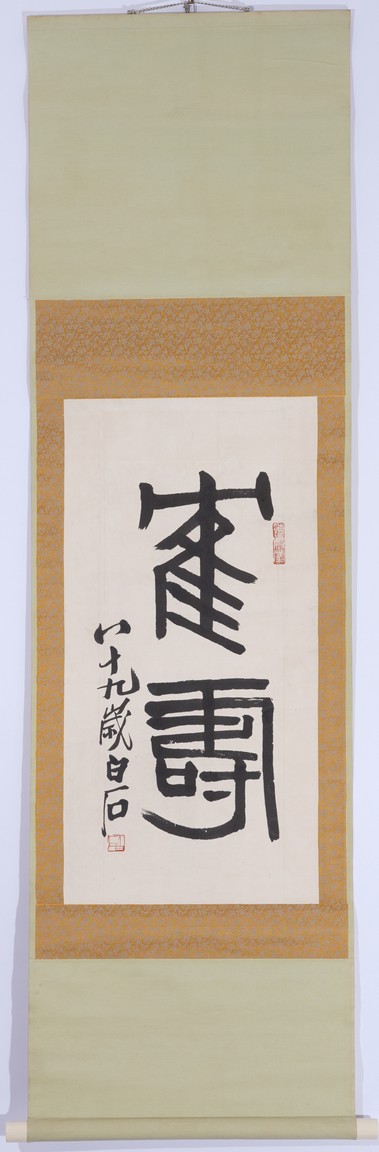 寉壽
八十九歲白石